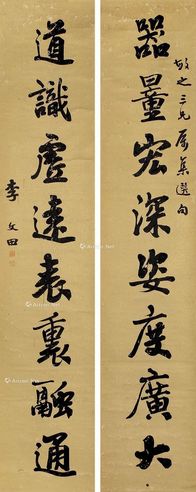 敬之三兄属集選句
器量宏深姿度廣大
道識虛遠表裏融通
李文田